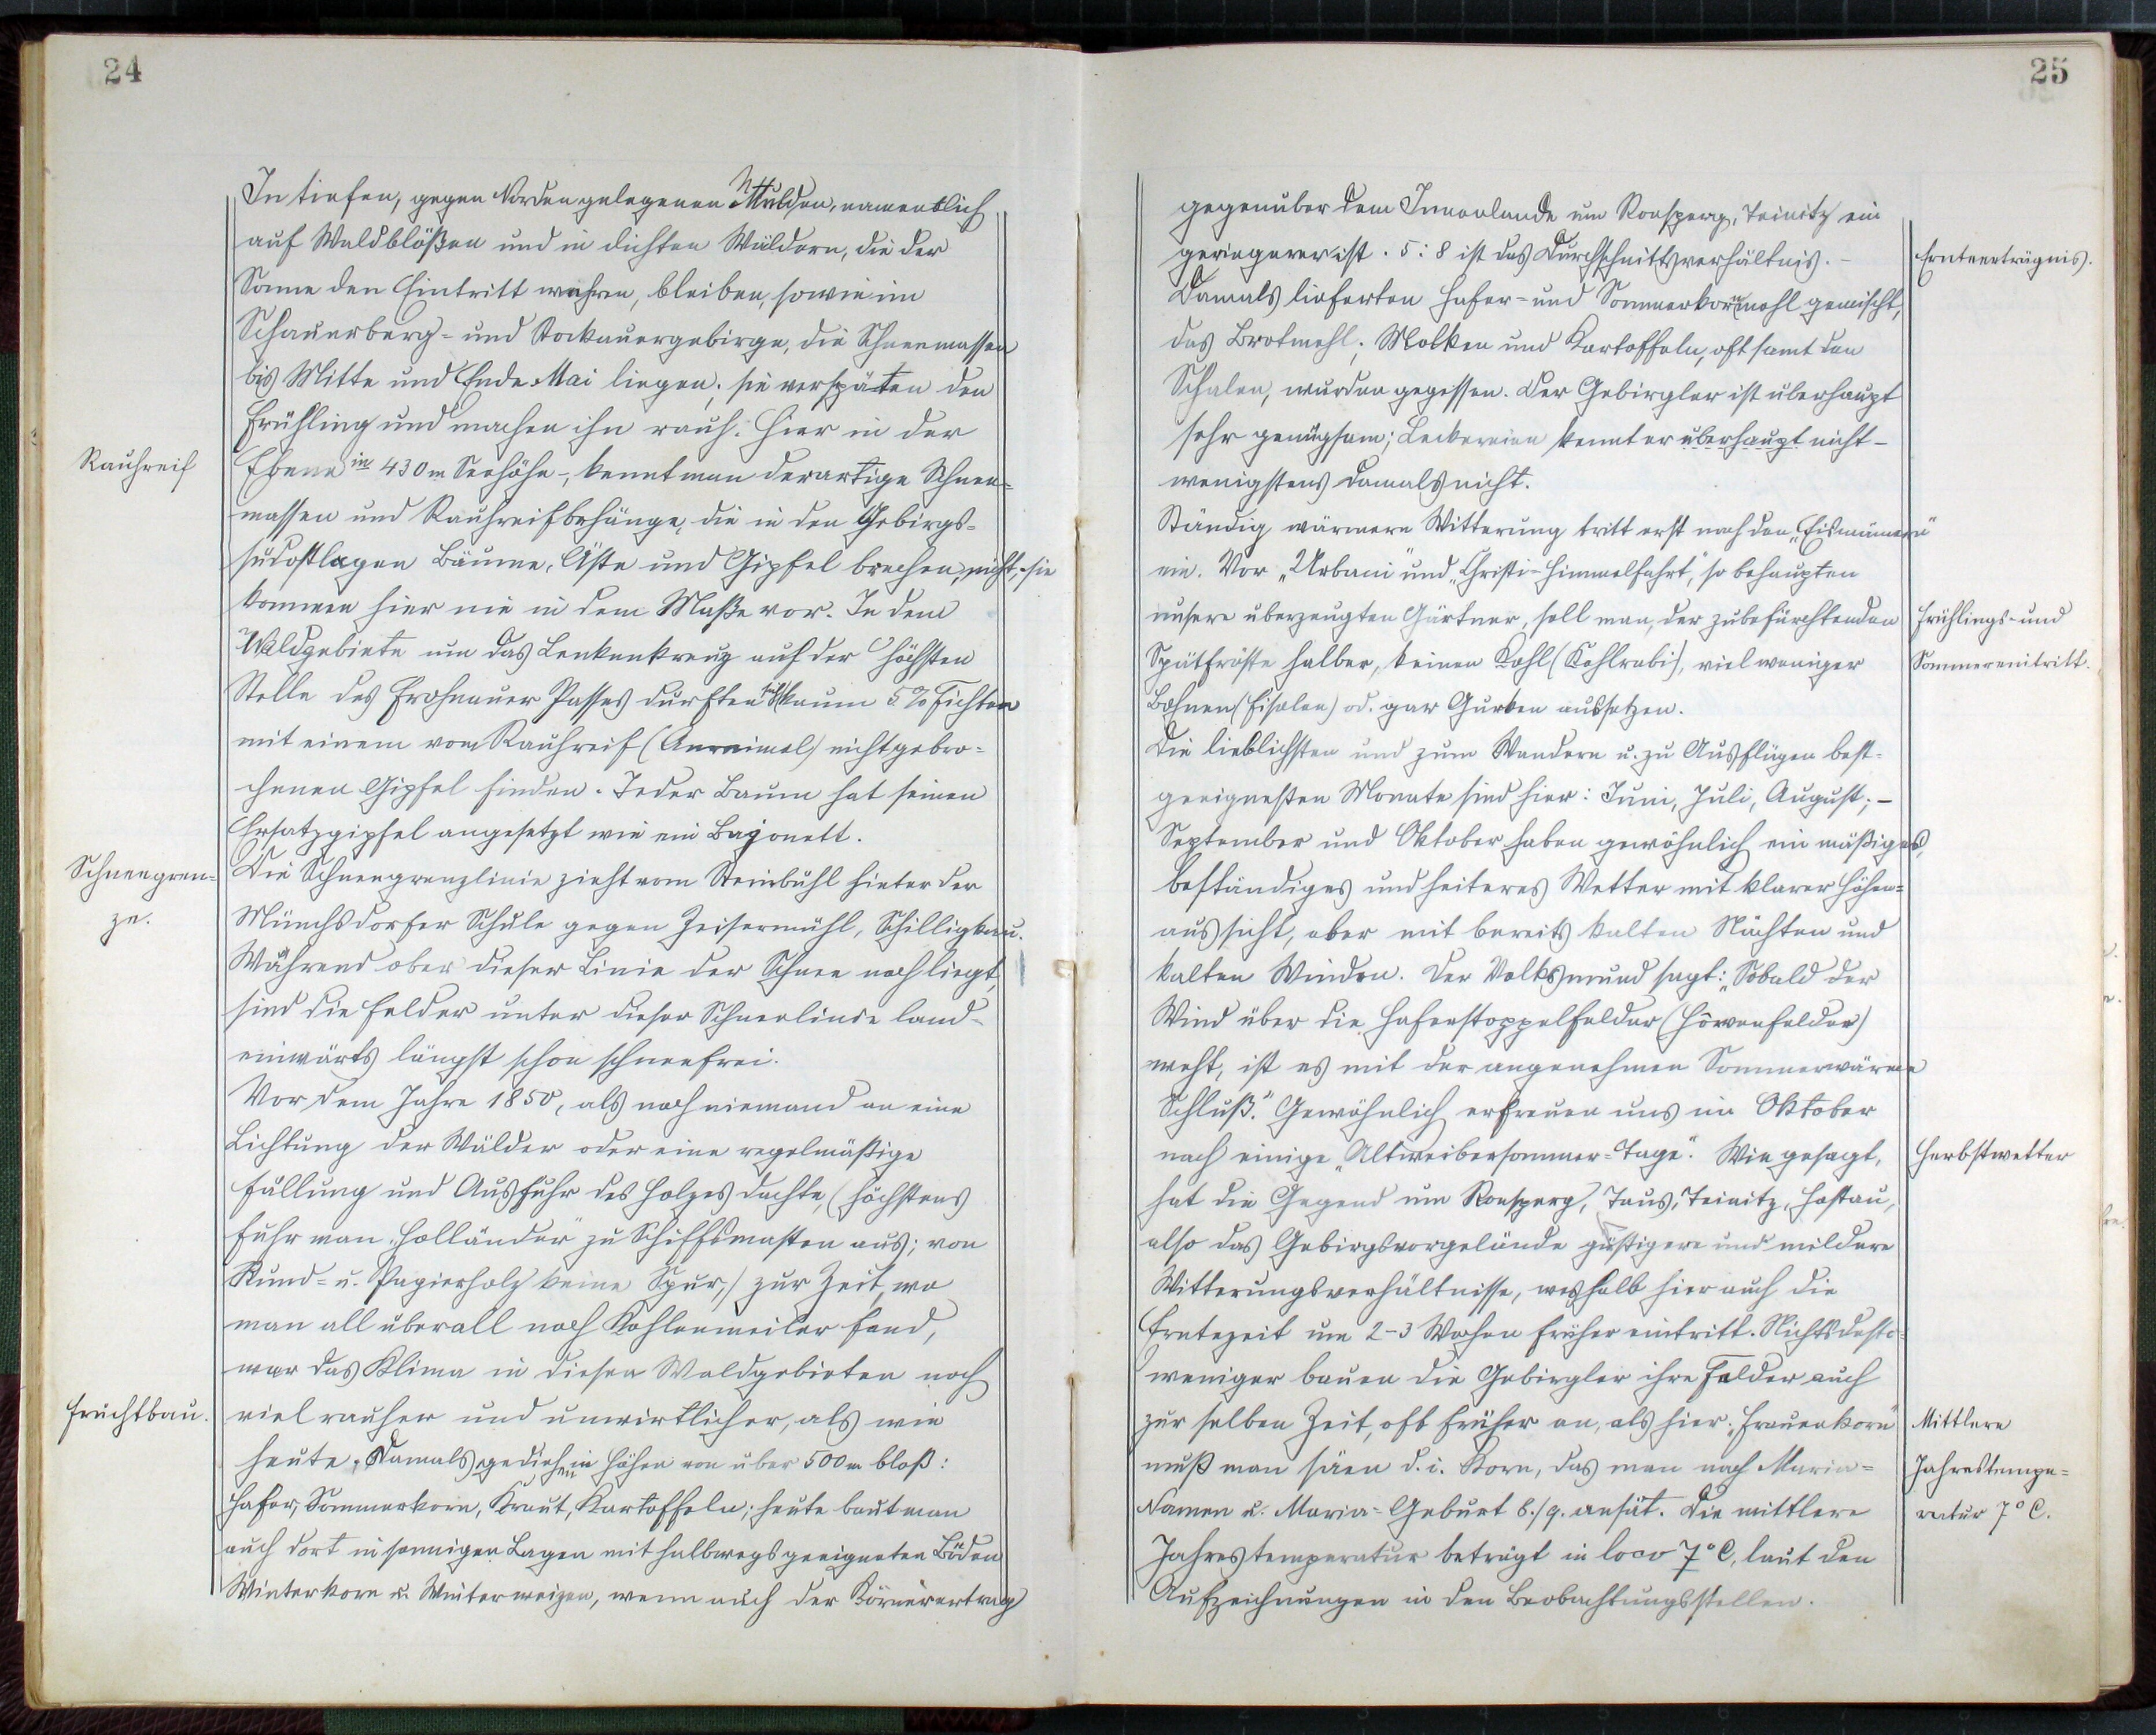 24
In tiefen, gegen Norden gelegenen Mulden, namentlich
auf Waldblößen und in dichten Wäldern, die der
Sonne den Eintritt wehren, bleiben, sowie im
Schauerberg- und Stockauergebirge, die Schneemassen
bis Mitte und Ende Mai liegen; sie verspäten den
Frühling und machen ihn rauh. Hier in der
Rauhreif
Ebene in 430 m Seehöhe -, kennt man derartige Schnee-
massen und Rauhreifbehänge, die in den Gebirgs-
südostlagen Bäume, Äste und Gipfel brechen, nicht, sie
kommen hier nie in dem Maße vor. In dem
Waldgebiete um das Lenkenkreuz auf der höchsten
Stelle des Frohnauer Passes dürften sich kaum 5% Fichten
mit einem vom Rauhreif (Anreimel) nicht gebro-
chenen Gipfel finden. Jeder Baum hat seinen
Ersatzgipfel angesetzt wie ein Bajonett.
Schneegren-
ze.
Die Schneegrenzlinie zieht vom Steinbühl hinter der
Münchsdorfer Schule gegen Zeisermühl, Schilligkau.
Während ober dieser Linie der Schnee noch liegt,
sind die Felder unter dieser Schneelinie land-
einwärts längst schon schneefrei.
Vor dem Jahre 1850, als noch niemand an eine
Lichtung der Wälder oder eine regelmäßige
Fällung und Ausfuhr des Holzes dachte, (höchstens
fuhr man „Holländer" zu Schiffsmasten aus; von
Rund- u. Papierholz keine Spur,) zur Zeit, wo
man all überall noch Kohlenmeiler fand,
war das Klima in diesen Waldgebieten noch
Fruchtbau.
viel rauher und unwirtlicher, als wie
heute. Damals gediehen in Höhen von über 500 m bloß:
Hafer, Sommerkorn, Kraut, Kartoffeln; heute baut man
auch dort in sonnigen Lagen mit halbwegs geeigneten Böden
Winterkorn u. Winterweizen, wenn auch der Körnerertrag
25
gegenüber dem Innenlande um Ronsperg, Teinitz ein
geringerer ist. 5:8 ist das Durchschnittsverhältnis. -
Ernteerträgnis.
Damals lieferten Hafer- und Sommerkornmehl gemischt,
das Brotmehl; Molken und Kartoffeln, oft samt den
Schalen, wurden gegessen. Der Gebirgler ist überhaupt
sehr genügsam; Leckereien kennt er überhaupt nicht -
wenigstens damals nicht.
Ständig wärmere Witterung tritt erst nach den „Eismännern"
ein. Vor „Urbani" und „Christi-Himmelfahrt", so behaupten
unsere überzeugten Gärtner, soll man, der zubefürchtenden
Frühlings- und
Sommereintritt.
Spätfröste halber, keinen Kohl (Kohlrabi), viel weniger
Bohnen (Fisolen) od. gar Gurken aussetzen.
Die lieblichsten und zum Wandern u. zu Ausflügen best-
geeignesten Monate sind hier: Juni, Juli, August; -
September und Oktober haben gewöhnlich ein mäßiges,
beständiges und heiteres Wetter mit klarer Höhen-
aussicht, aber mit bereits kalten Nächten und
kalten Winden. Der Volksmund sagt: „Sobald der
Wind über die Haferstoppelfelder (Höwenfelder)
weht, ist es mit der angenehmen Sommerwärme
Schluß." Gewöhnlich erfreuen uns im Oktober
noch einige „Altweibersommer-Tage". Wie gesagt,
Herbstwetter
hat die Gegend um Ronsperg, Taus, Teinitz, Hostau,
also das Gebirgsvorgelände günstigere und mildere
Witterungsverhältnisse, weshalb hier auch die
Erntezeit um 2-3 Wochen früher eintritt. Nichtsdesto-
weniger bauen die Gebirgler ihre Felder auch
zur selben Zeit, oft früher an, als hier. „Frauenkorn"
Mittlere
Jahrestempe-
ratur 7° C.
muß man säen d. i. Korn, das man nach Maria-
Namen u. Maria-Geburt 8./9. ansät. Die mittlere
Jahrestemperatur beträgt in loco 7° C, laut den
Aufzeichnungen in den Beobachtungsstellen.